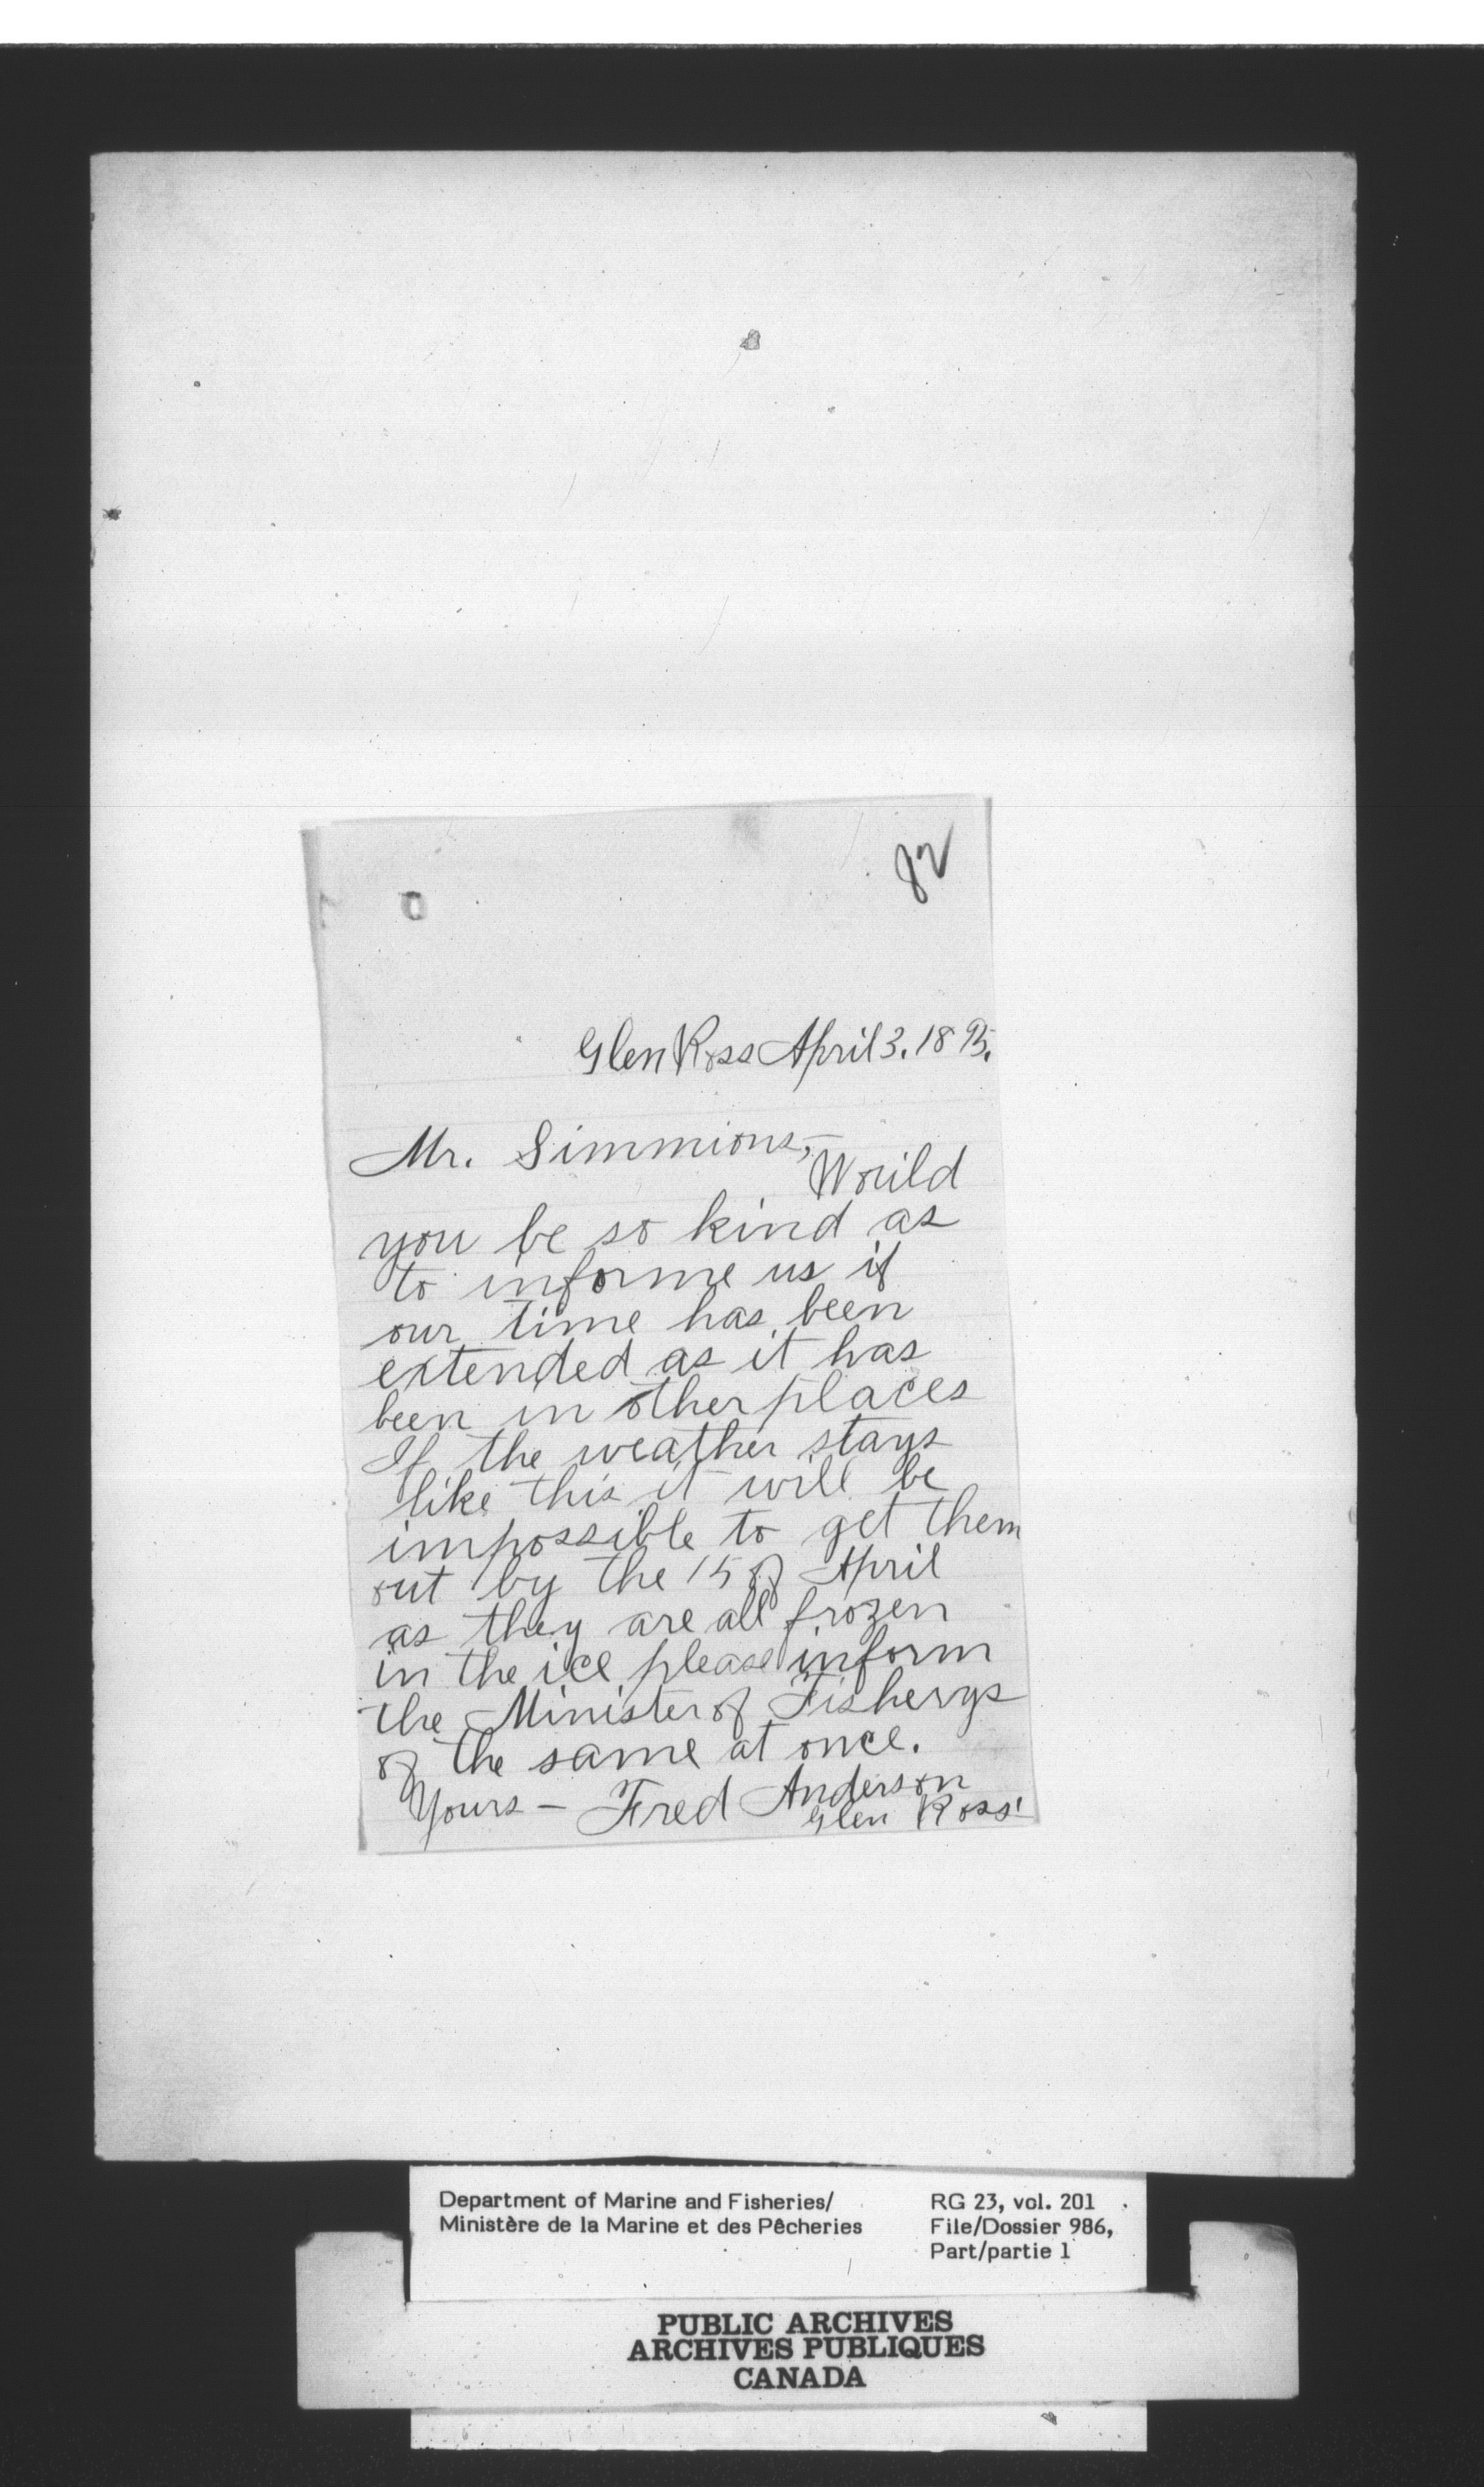 82
Glen Ross April 3. 1895.
Mr. Simmions,-
Would
you be so kind as
to informe us if
our time has been
extended as it has
been in other places
If the weather stays
like this it will be
impossible to get them
out by the 15 of April
as they are all frozen
in the ice please inform
the Minister of Fisherys
of the same at once.
Yours - Fred Anderson
Glen Ross
Department of Marine and Fisheries/
Ministère de la Marine et des Pêcheries
RG 23, vol. 201
File/Dossier 986,
Part/partie 1
PUBLIC ARCHIVES
ARCHIVES PUBLIQUES
CANADA